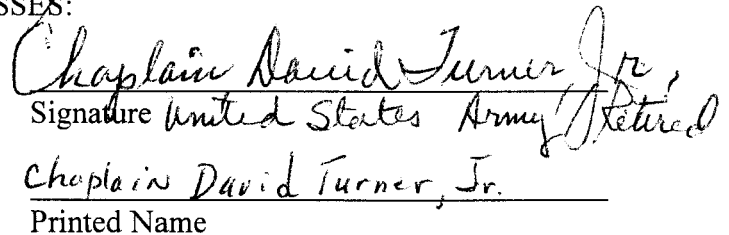 SSES:
Chaplain David Turner, Jr.,
Signature United States Army, Retired
Chaplain David Turner, Jr.
Printed Name